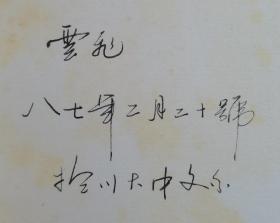 雲飛
八七年二月二十號
扵川大中文系